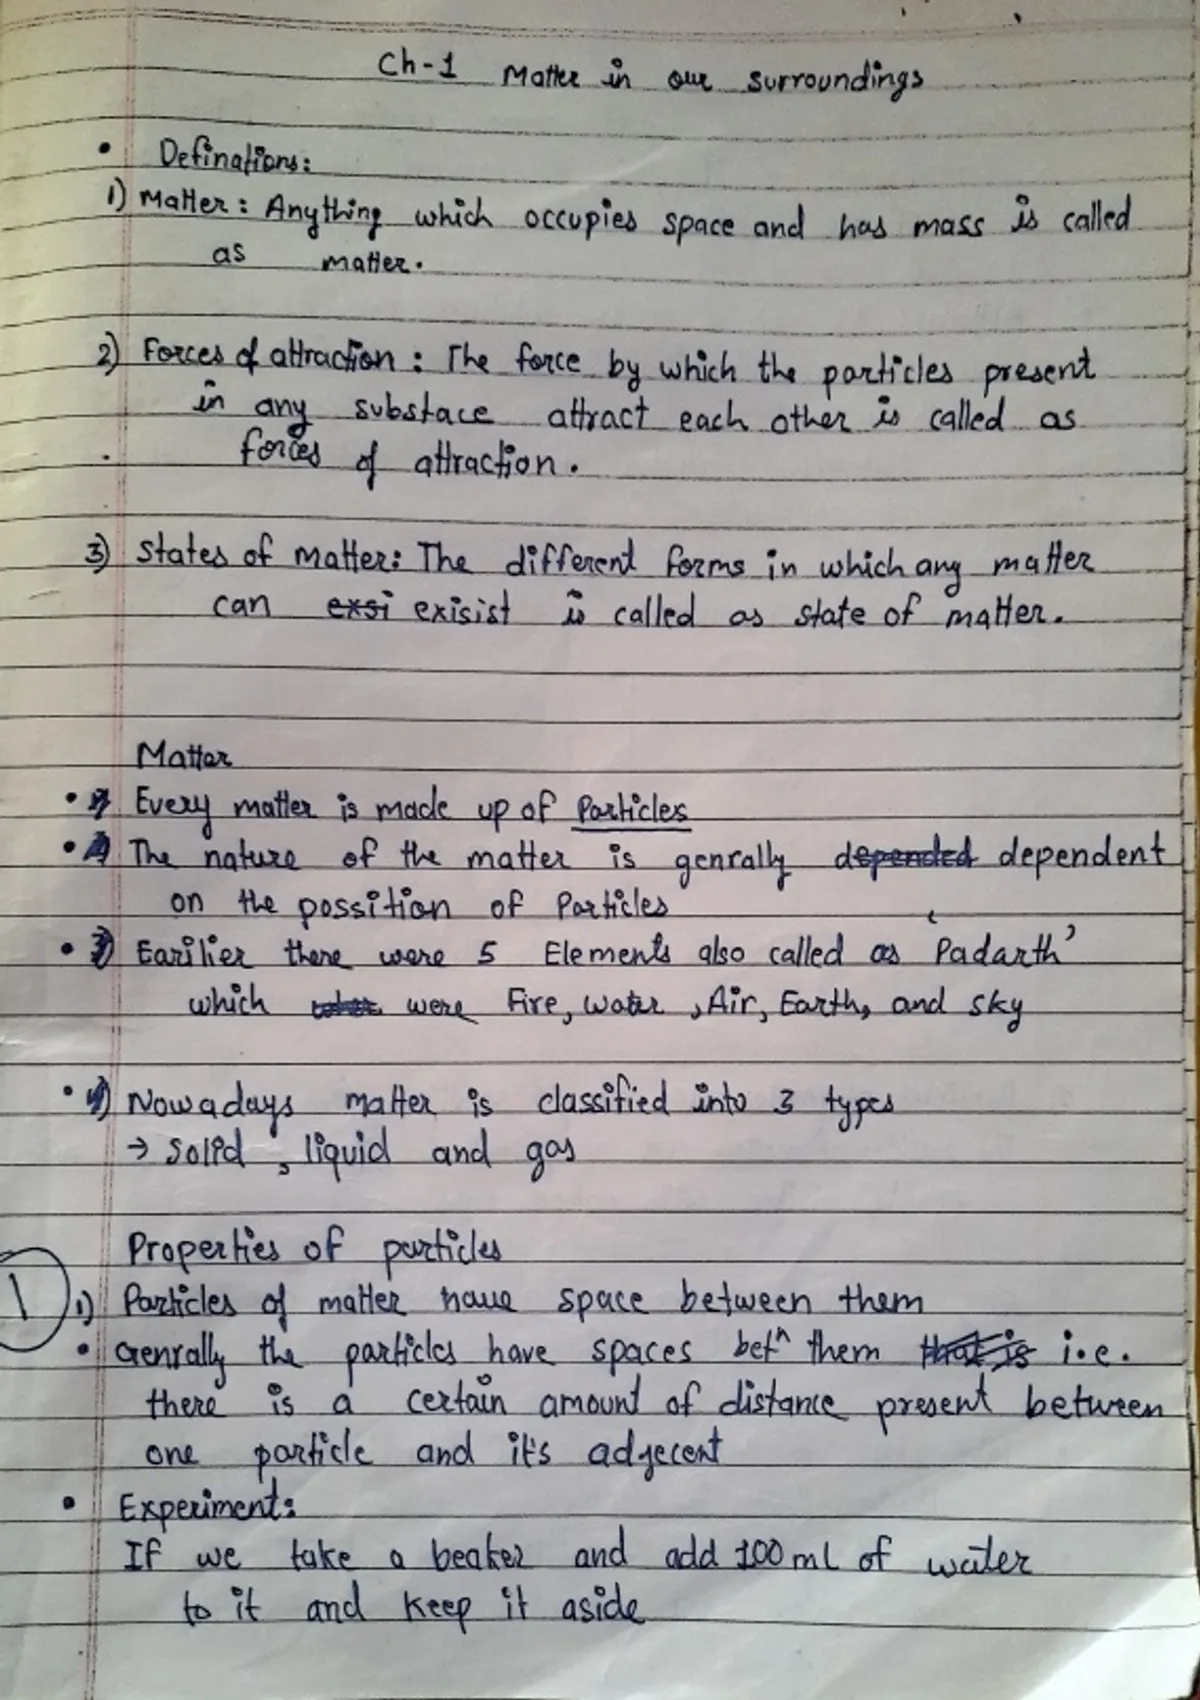 Ch-1 Matter in our surroundings
• Definations:
1) Matter: Anything which occupies space and has mass is called
as matter.
2) Forces of attraction: The force by which the particles present
in any substace attract each other is called as
forces of attraction.
3) States of matter: The different forms in which any matter
can exsi exisist is called as state of matter.
Matter
• Every matter is made up of Particles
• The nature of the matter is genrally depended dependent
on the possition of Particles
• 3) Earilier there were 5 Elements also called as 'Padarth'
which were Fire, water, Air, Earth, and sky
• 4) Nowadays matter is classified into 3 types
→ Solid, liquid and gas
Properties of particles
1 1) Particles of matter have space between them
• Genrally the particles have spaces betn them that is i.e.
there is a certain amount of distance present between
one particle and it's adjecent
• Experiment:
If we take a beaker and add 100 ml of water
to it and keep it aside